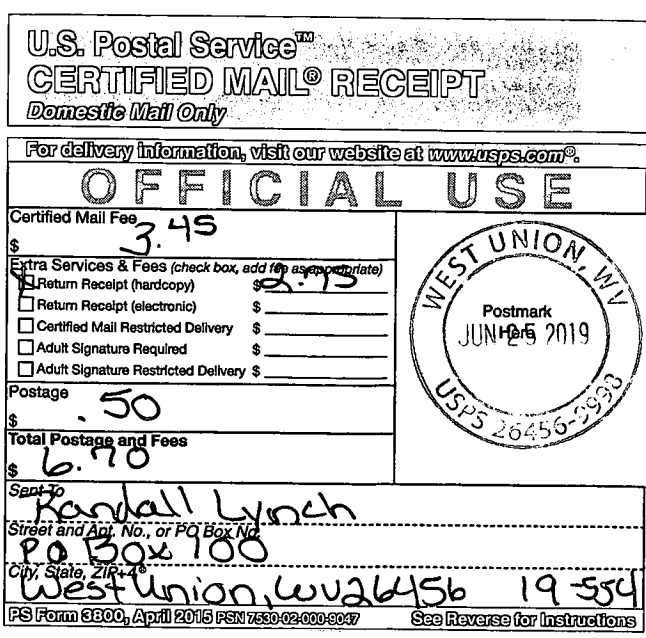 U.S. Postal Service™
CERTIFIED MAIL® RECEIPT
Domestic Mail Only
For delivery information, visit our website at www.usps.com®.
OFFICIAL USE
Certified Mail Fee
$ 3.45
Extra Services & Fees (check box, add fee as appropriate)
Return Receipt (hardcopy) $ 2.75
Return Receipt (electronic) $
Certified Mail Restricted Delivery $
Adult Signature Required $
Adult Signature Restricted Delivery $
Postage
$ .50
Total Postage and Fees
$ 6.70
WEST UNION, WV
Postmark
Here
JUN 25 2019
USPS 26456-9998
Sent To
Randall Lynch
Street and Apt. No., or PO Box No.
PO Box 100
City, State, ZIP+4®
West Union, WV 26456 19-554
PS Form 3800, April 2015 PSN 7530-02-000-9047 See Reverse for Instructions